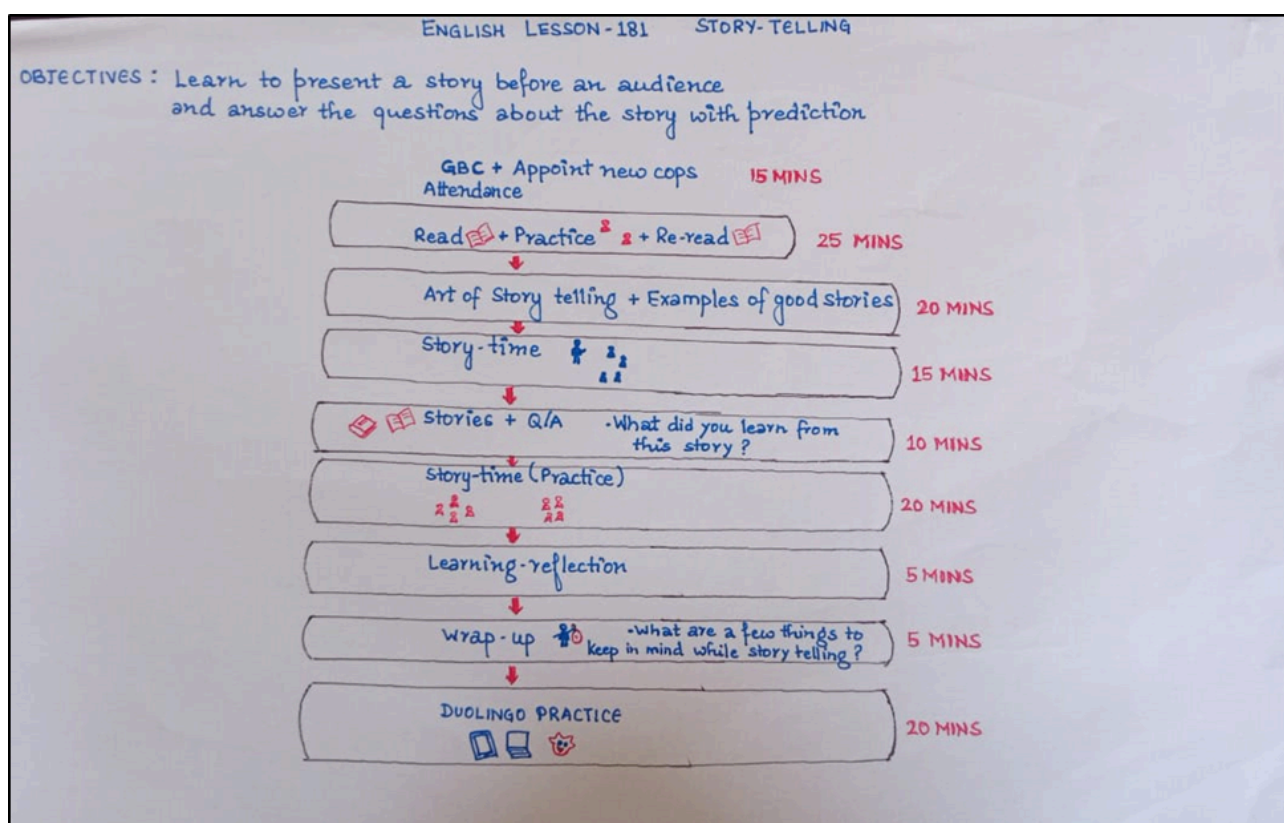 ENGLISH LESSON-181 STORY-TELLING
OBJECTIVES: Learn to present a story before an audience
and answer the questions about the story with prediction
GBC + Appoint new cops 15 MINS
Attendance
Read + Practice + Re-read 25 MINS
Art of Story telling + Examples of good stories 20 MINS
Story-time 15 MINS
Stories + Q/A -What did you learn from
this story? 10 MINS
Story-time (Practice) 20 MINS
Learning-reflection 5 MINS
Wrap-up -What are a few things to
keep in mind while story telling? 5 MINS
DUOLINGO PRACTICE 20 MINS